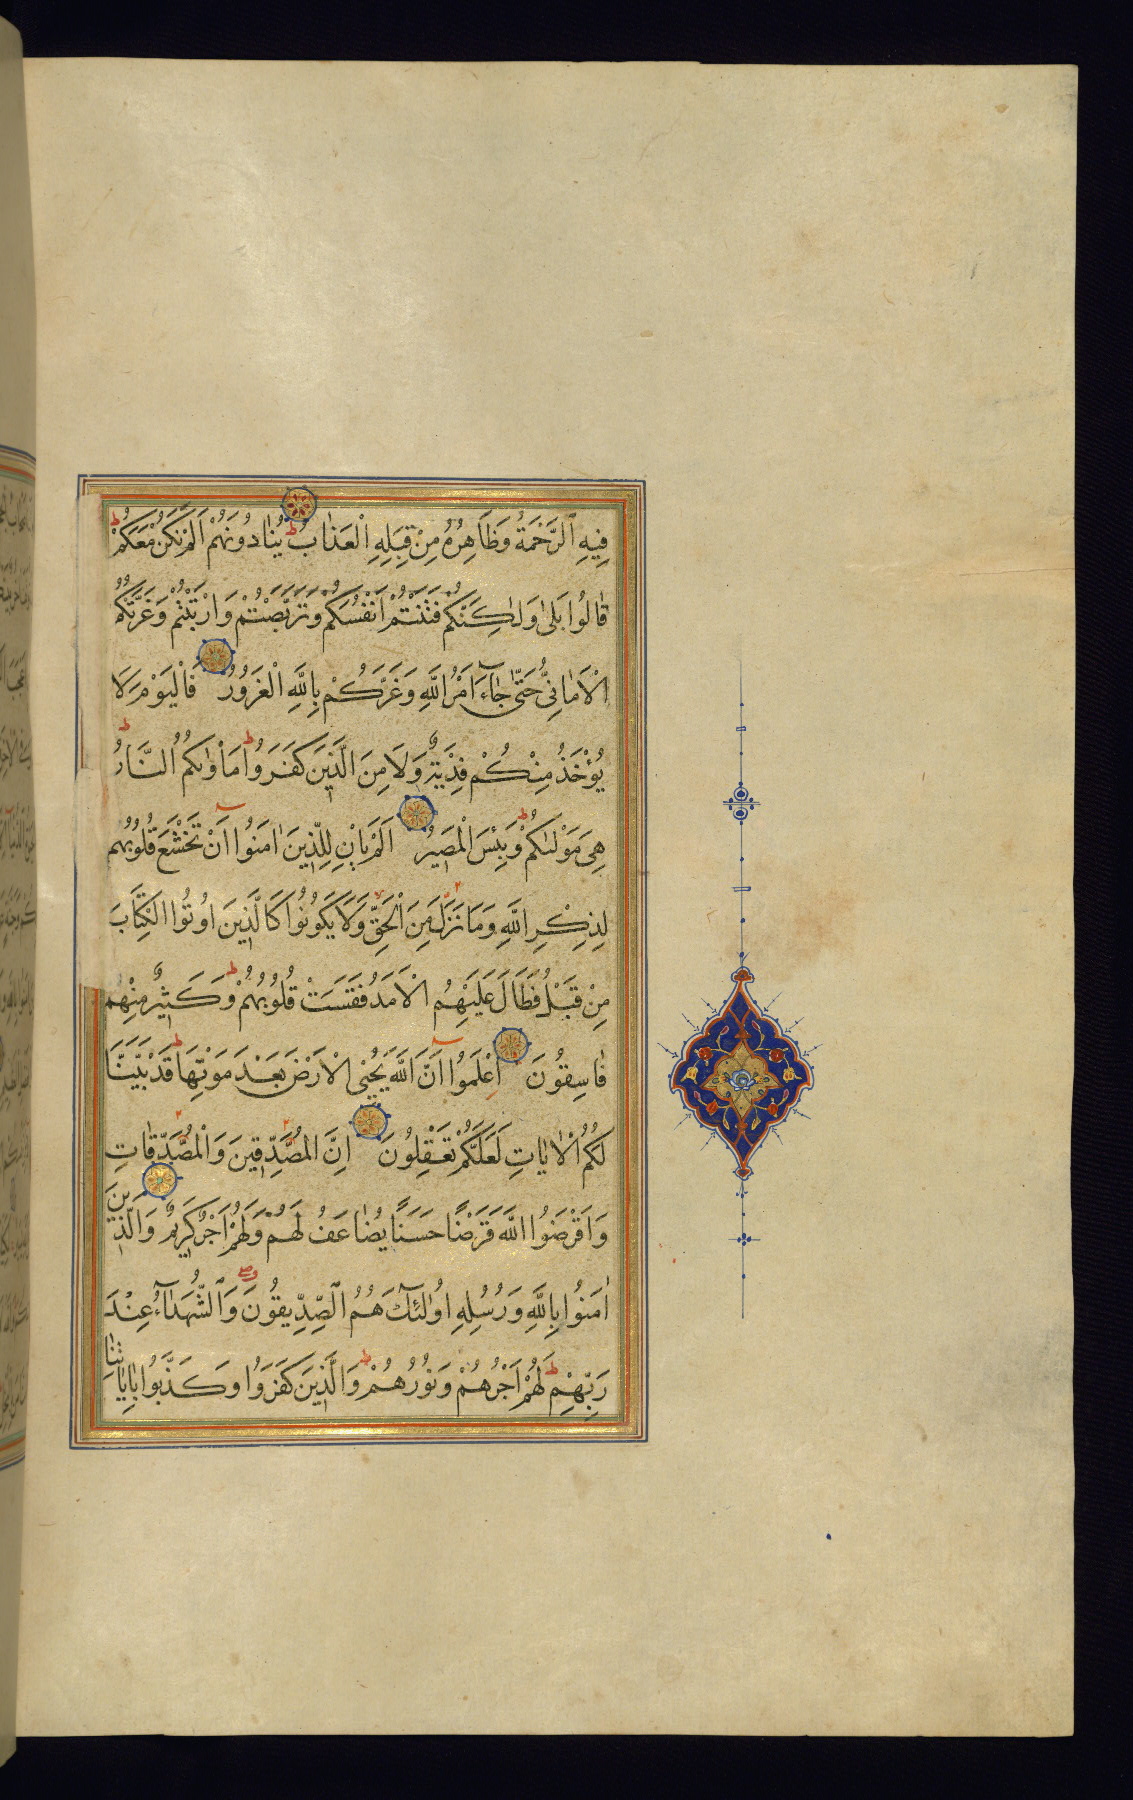 فِيهِ الرَّحْمَةُ وَظَاهِرُهُ مِنْ قِبَلِهِ الْعَذَابُ ط يُنَادُونَهُمْ اَلَمْ نَكُنْ مَعَكُمْ ط
قَالُوا بَلٰى وَلٰكِنَّكُمْ فَتَنْتُمْ اَنْفُسَكُمْ وَتَرَبَّصْتُمْ وَارْتَبْتُمْ وَغَرَّتْكُمُ
الْاَمَانِىُّ حَتّٰى جَاءَ اَمْرُ اللّٰهِ وَغَرَّكُمْ بِاللّٰهِ الْغَرُورُ فَالْيَوْمَ لَا
يُؤْخَذُ مِنْكُمْ فِدْيَةٌ وَلَا مِنَ الَّذِينَ كَفَرُوا ط مَاْوٰىكُمُ النَّارُ ط
هِىَ مَوْلٰىكُمْ ط وَبِئْسَ الْمَصِيرُ اَلَمْ يَاْنِ لِلَّذِينَ اٰمَنُوا اَنْ تَخْشَعَ قُلُوبُهُمْ
لِذِكْرِ اللّٰهِ وَمَا نَزَلَ مِنَ الْحَقِّ وَلَا يَكُونُوا كَالَّذِينَ اُوتُوا الْكِتَابَ
مِنْ قَبْلُ فَطَالَ عَلَيْهِمُ الْاَمَدُ فَقَسَتْ قُلُوبُهُمْ ط وَكَثِيرٌ مِنْهُمْ
فَاسِقُونَ اِعْلَمُوا اَنَّ اللّٰهَ يُحْيِى الْاَرْضَ بَعْدَ مَوْتِهَا ط قَدْ بَيَّنَّا
لَكُمُ الْاٰيَاتِ لَعَلَّكُمْ تَعْقِلُونَ اِنَّ الْمُصَّدِّقِينَ وَالْمُصَّدِّقَاتِ
وَاَقْرَضُوا اللّٰهَ قَرْضًا حَسَنًا يُضَاعَفُ لَهُمْ وَلَهُمْ اَجْرٌ كَرِيمٌ وَالَّذِينَ
اٰمَنُوا بِاللّٰهِ وَرُسُلِهِ اُولٰئِكَ هُمُ الصِّدِّيقُونَ وَالشُّهَدَاءُ عِنْدَ
رَبِّهِمْ ط لَهُمْ اَجْرُهُمْ وَنُورُهُمْ ط وَالَّذِينَ كَفَرُوا وَكَذَّبُوا بِاٰيَاتِنَا